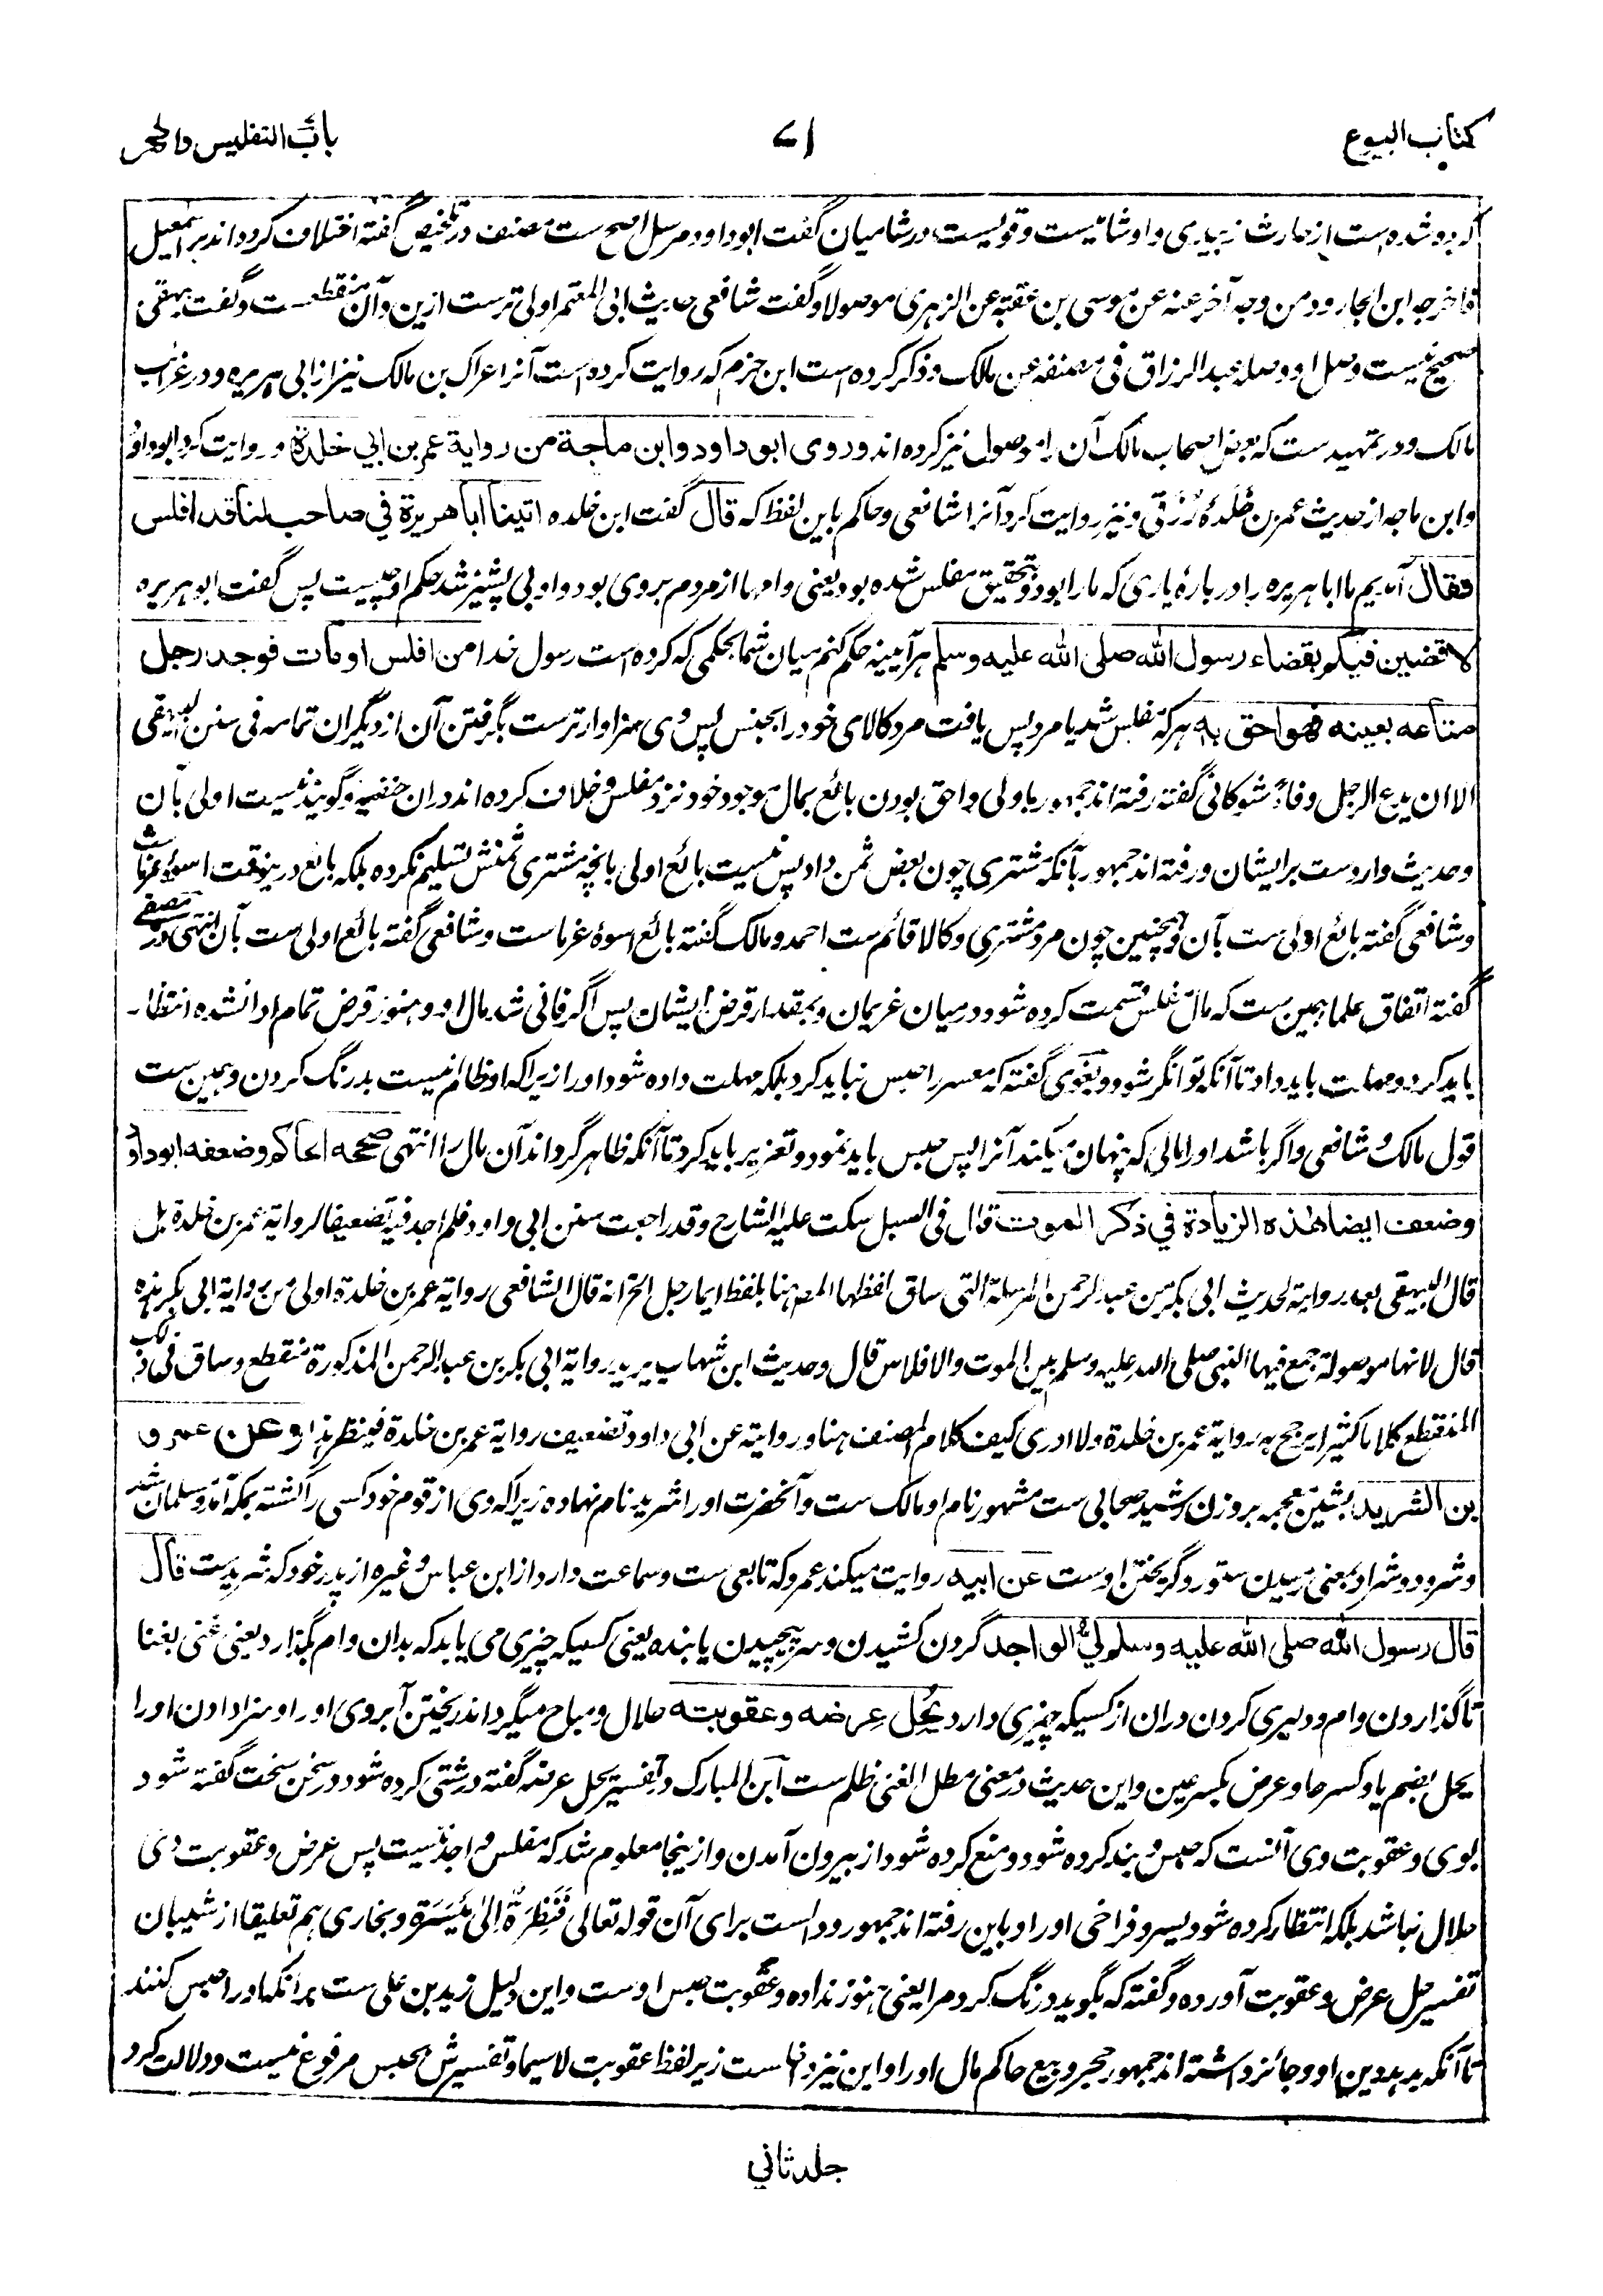 کتاب البیوع
۷۱
باب التفلیس والحجر
کرده شده است از حارث زبیدی و او شامیست و قویست در شامیان گفت ابوداود مرسل اصح ست مصنف در تلخیص گفته اختلاف کرده اند بر اسمعیل
فاخرجه ابن الجارود من وجه آخر عنه عن موسی بن عقبة عن الزهری موصولا و گفت شافعی حدیث ابی المعتمر اولی ترست ازین و آن منقطعست و گفت بیهقی
صحیح نیست وصل او و وصله عبد الرزاق فی مصنفه عن مالک و ذکر کرده است ابن حزم که روایت کرده است آنرا عراک بن مالک نیز از ابی هریره و در غرائب
مالک و در تمهید ست که بعض اصحاب مالک آن را موصول نیز کرده اند وروی ابو داود وابن ماجة من روایة عمر بن ابي خلدة و روایت کرد ابوداود
وابن ماجه از حدیث عمر بن خَلْدَهُ زُرَقی و نیز روایت کرد آنرا شافعی و حاکم باین لفظ که قال گفت ابن خلده اتینا ابا هریرة في صاحب لنا قد افلس
فقال آمدیم ما ابا هریره را در بارهٔ یاری که ما را بود و بتحقیق مفلس شده بود یعنی وامها از مردم بروی بود و او بی پشیز شد حکم او چیست پس گفت ابو هریره
لاقضین فیکم بقضاء رسول الله صلی الله علیه وسلم هر آیینه حکم کنم میان شما بحکمی که کرده است رسول خدا من افلس او مات فوجد رجل
متاعه بعینه فهو احق به هر که مفلس شد یا مرد پس یافت مرد کالای خود را بجنس پس وی سزاوارترست بگرفتن آن از دیگران تمامه فی سنن البیهقی
الا ان یدع الرجل وفاءً شوکانی گفته رفته اند جمهور باولی و احق بودن بائع بمال موجود خود نزد مفلس و خلاف کرده اند دران حنفیه و گویند نیست اولی بآن
و حدیث واردست بر ایشان و رفته اند جمهور بآنکه مشتری چون بعض ثمن داد پس نیست بائع اولی بانچه مشتری ثمنش تسلیم نکرده بلکه بائع درینوقت اسوهٔ غرماست
و شافعی گفته بائع اولی ست بآن و همچنین چون مرد مشتری و کالا قائم ست احمد و مالک گفته بائع اسوهٔ غرماست و شافعی گفته بائع اولی ست بآن انتهی و در مصفی
گفته اتفاق علما بهمین ست که مال مفلس قسمت کرده شود درمیان غریمان و بمقدار قرض ایشان پس اگر فانی شد مال او و هنوز قرض تمام ادا نشده انتظار
باید کرد و مهلت باید داد تا آنکه توانگر شود و بغوی گفته که معسر را حبس نباید کرد بلکه مهلت داده شود او را زیراکه او ظالم نیست بدرنگ کردن و همین ست
قول مالک و شافعی و اگر باشد او را مالی که پنهان میکند آنرا پس حبس باید نمود و تعزیر باید کرد تا آنکه ظاهر گرداند آن مال را انتهی صححه الحاکم وضعفه ابوداود
وضعف ایضا هذه الزیادة في ذکر الموت قال فی السبل سکت علیه الشارح وقد راجعت سنن ابی داود فلم اجد فیه تضعیفا لروایة عمر بن خلدة بل
قال البیهقی بعد روایته لحدیث ابی بکر بن عبد الرحمن المرسلة التی ساق لفظها المصر هنا بلفظ ایما رجل الخ انه قال الشافعی روایة عمر بن خلدة اولی من روایة ابی بکر هذه
قال لانها موصولة جمع فیها النبی صلی الله علیه وسلم بین الموت والافلاس قال وحدیث ابن شهاب یرید به روایة ابی بکر بن عبد الرحمن المذکورة منقطع وساق فی ذلک
المنقطع کلاما کثیرا یرجح به روایة عمر بن خلدة ولا ادری کیف کلام المصنف هنا وروایته عن ابی داود تضعیف روایة عمر بن خلدة فینظر هذا وعن عمرو
بن الشرید بشین معجمه بروزن رشید صحابی ست مشهور نام او مالک ست و آنحضرت او را شرید نام نهاده زیراکه وی از قوم خود کسی را کشته بمکه آمد و مسلمان شد
و شرود و شراد بمعنی رمیدن ستور و گریختن اوست عن ابیه روایت میکند عمرو که تابعی ست و سماعت دارد از ابن عباس و غیره از پدر خود که شریدست قال
قال رسول الله صلی الله علیه وسلم لي الواجد گردن کشیدن و سرپیچیدن یابنده یعنی کسیکه چیزی می یابد که بدان وام بگذارد یعنی غنی بغنا
تا گذاردن وام و دلیری کردن دران از کسیکه چیزی دارد یُحِلّ عِرضه وعقوبته حلال و مباح میگرداند ریختن آبروی او را و سزا دادن او را
یحل بضم یا و کسر حا و عرض بکسر عین و این حدیث در معنی مطل الغنی ظلم ست ابن المبارک در تفسیر یحل عرضه گفته درشتی کرده شود در سخن سخت گفته شود
بوی و عقوبت وی آنست که حبس و بند کرده شود و منع کرده شود از بیرون آمدن و ازینجا معلوم شد که مفلس واجد نیست پس عرض و عقوبت وی
حلال نباشد بلکه انتظار کرده شود یسر و فراخی او را و باین رفته اند جمهور و دال است برای آن قوله تعالی فَنَظِرَةٌ اِلیٰ مَیْسَرَةٍ و بخاری هم تعلیقا از سفیان
تفسیر حل عرض و عقوبت آورده و گفته که بگوید درنگ کرد مرا یعنی هنوز نداده و عقوبت حبس اوست و این دلیل زید بن علی ست برانکه او را حبس کنند
تا آنکه بدهد دین او و جائز داشته اند جمهور حجر و بیع حاکم مال او را و این نیز داخل ست زیر لفظ عقوبت لاسیما و تفسیرش بحبس مرفوع نیست و دلالت کرد
جلد ثاني